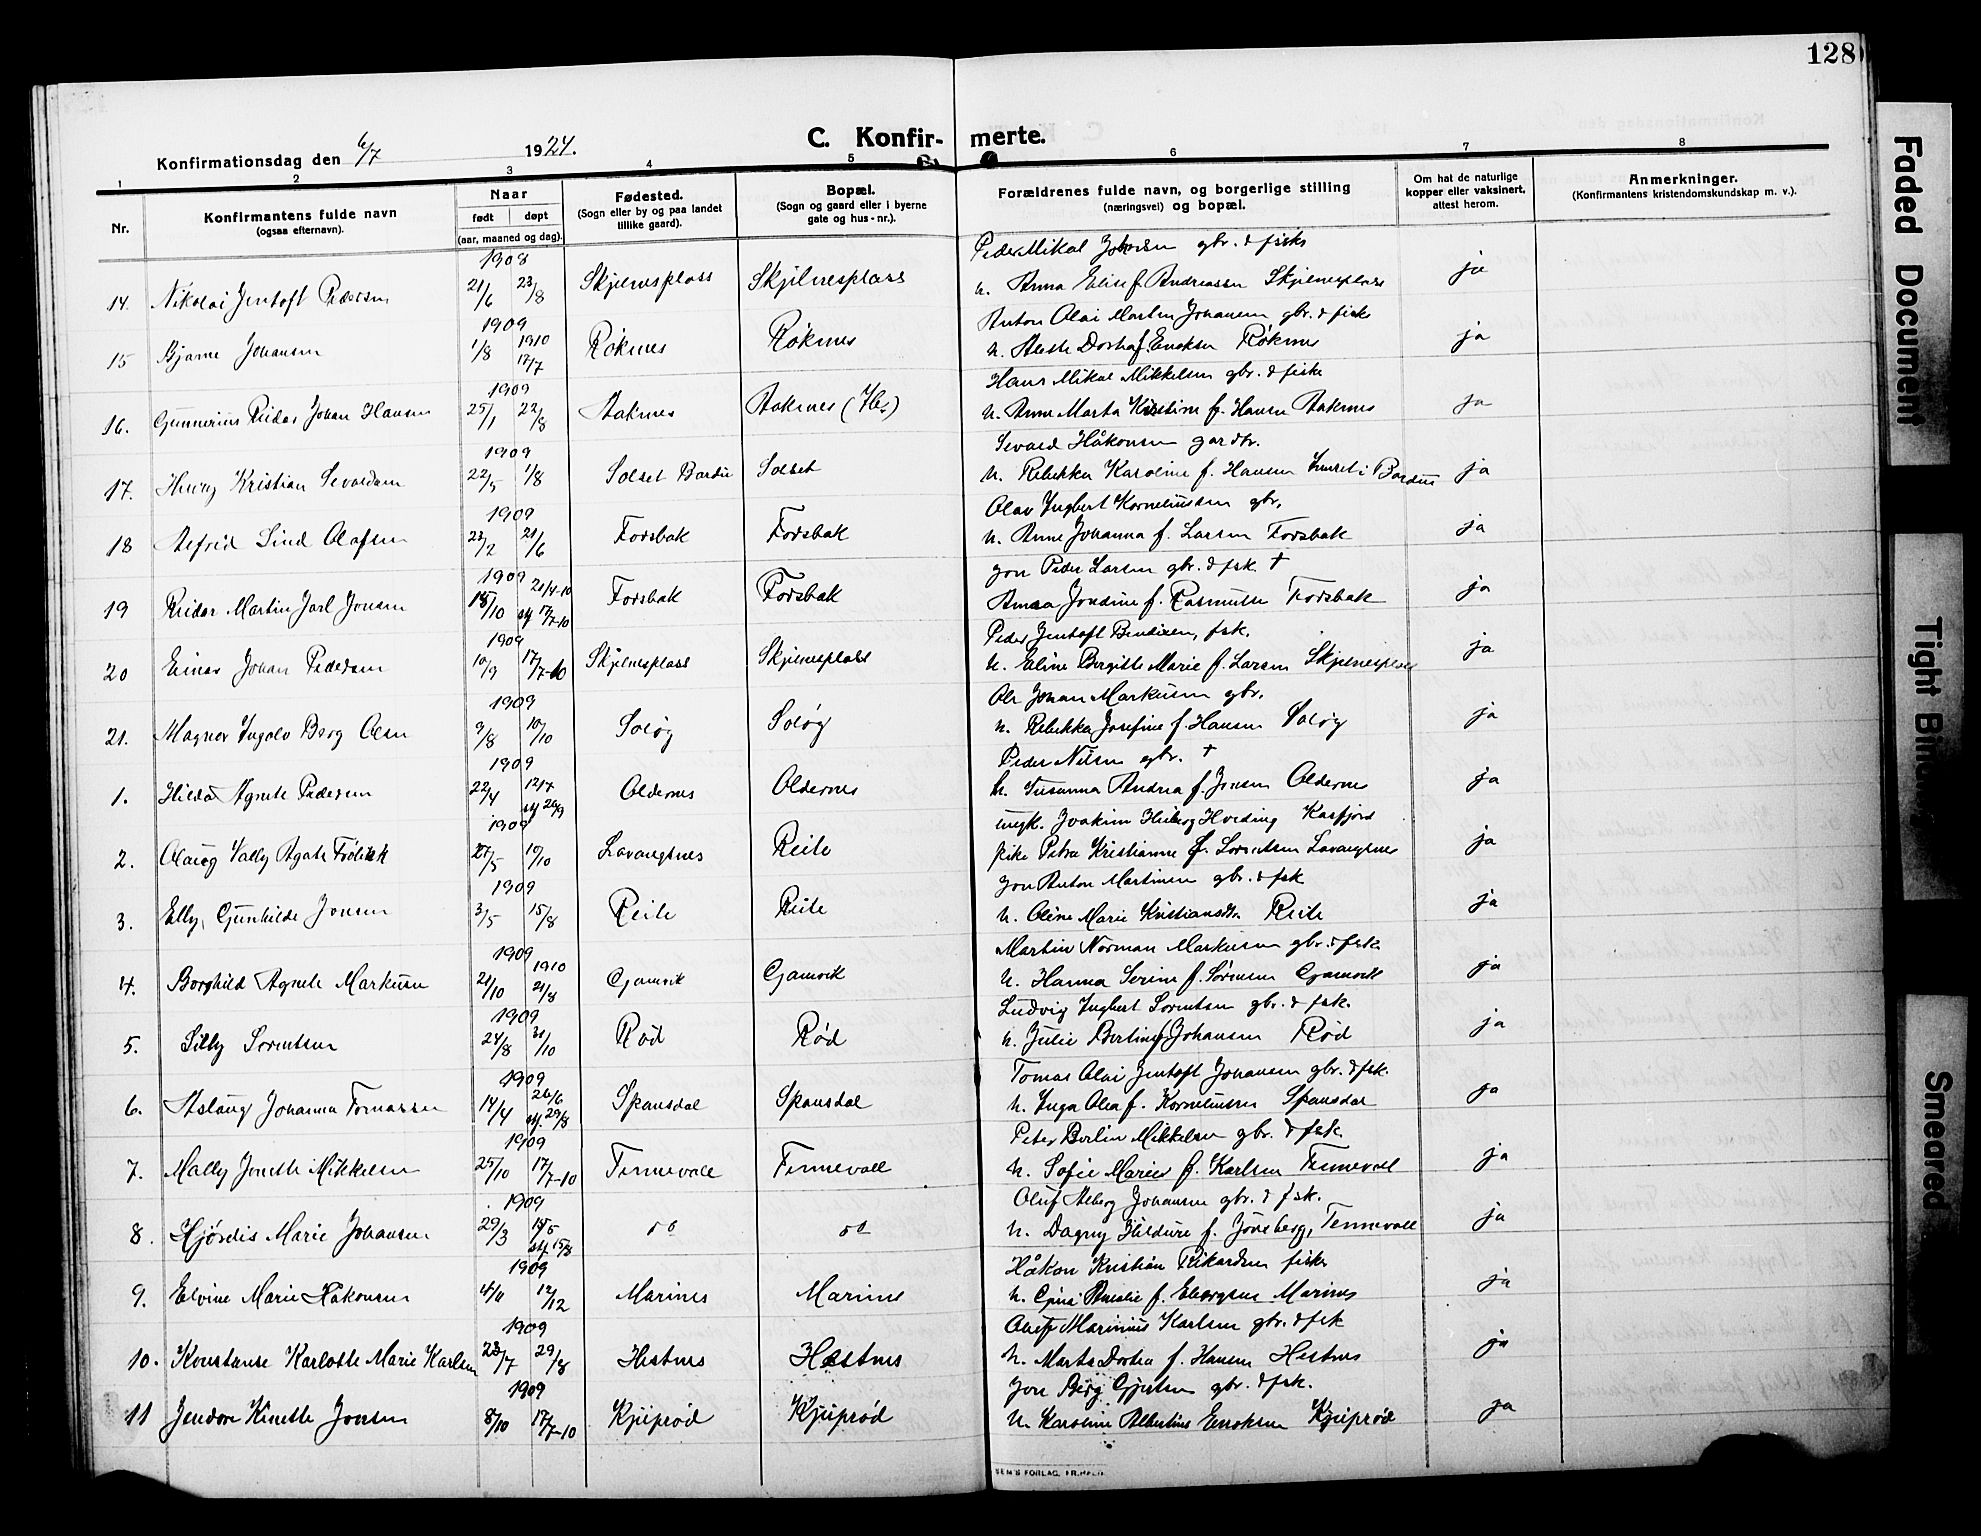 128
C. Konfirmerte.
Konfirmationsdag den 6/7 1924.
1 2 3 4 5 6 7 8
Nr. Konfirmantens fulde navn (ogsaa efternavn). Naar født døpt (aar, maaned og dag). Fødested. (Sogn eller by og paa landet tillike gaard). Bopæl. (Sogn og gaard eller i byerne gate og hus-nr.). Forældrenes fulde navn, og borgerlige stilling (næringsvei) og bopæl. Om hat de naturlige kopper eller vaksinert, attest herom. Anmerkninger. (Konfirmantens kristendomskundskap m. v.).
1908 Peder Mikal gbr. & fisker
14. Nikolai Jentoft Pedersen 21/6 23/8 Skjelnesplass Skjelnesplass h. Anna Elise f. Andreassen Skjelnesplass ja
1909 Anton Olai Martin Johansen gbr. & fisk
15 Bjarne Johansen 1/8 1910 17/7 Røknes Røknes h. Dorthea f. Enoksen Røknes ja
1909 Hans Mikal Mikkelsen gbr. & fisker
16. Gunnerius Peder Johan Hansen 25/1 22/8 Aaknes Aaknes h. Anne Marta Kristine f. Hansen Aaknes ja
1909 Sevald Håkonsen gardbr.
17. Kristian Sevaldsen 22/5 1/8 Solset Bardu Solset h. Rebekka Karoline f. Hansen i Bardu ja
1909 Olav Ingbert Korneliussen gbr.
18 Alfred Olafsen 23/2 21/6 Forsbak Forsbak h. Anne Johanna f. Larsen Forsbak ja
1909 Jon Peder Larsen gbr. & fsk. †
19 Reidar Martin Jarl Jonsen 18/10 21/4-10 stf 17/7-10 Forsbak Forsbak Anna Jondine f. Rasmussen Forsbak ja
1909 Peder Jentoft Bendiksen, fsk.
20 Einar Johan Pedersen 10/9 17/7-10 Skjelnesplass Skjelnesplass h. Eline Bergitte Marie f. Larsen Skjelnesplass ja
1909 Ole Johan Markusen gbr.
21. Magnor Ingolv Berg Olsen 9/8 10/10 Soløy Soløy h. Rebekka Josefine f. Hansen Soløy ja
1909 Peder Nilsen gbr. †
1. Hilda Agnete Pedersen 22/4 12/7 stf 26/9 Oldernes Oldernes h. Susanna Andrea f. Jonsen Oldernes ja
1909 ungk. Joakim Heiberg Hveding Kasfjord
2. Olaug Vally Agate 27/5 10/10 Lavangsnes Reite pike Petra Kristianne f. Lorentsen Lavangsnes ja
1909 Jon Anton Martinsen gbr. & fsk
3. Elly Gunhilde Jonsen 3/5 15/8 Reite Reite h. Oline Marie Kristiansdtr. Reite ja
1909 Martin Norman Markusen gbr. & fsk.
4. Borghild Agnete Markusen 21/10 1910 21/8 Gamvik Gamvik h. Hanna Serine f. Sørensen Gamvik ja
1909 Ludvig Ingbert Lorentsen gbr. & fsk.
5. Silly Lorentsen 24/8 31/10 Rød Rød h. Julie Bertine f. Johansen Rød ja
1909 Tomas Olai Jentoft Johansen gbr. & fsk.
6. Aslaug Johanna Tomassen 14/4 26/6 stf. 29/8 Spansdal Spansdal h. Inga Olea f. Korneliussen Spansdal ja
1909 Peter Berlin Mikkelsen gbr. & fsk.
7. Mally Jonette Mikkelsen 25/10 17/7-10 Tennevoll Tennevoll h. Sofie Marie f. Karlsen Tennevoll ja
1909 Oluf Alberg Johansen gbr. & fsk.
8. Hjørdis Marie Johansen 29/3 stf. 15/8 do do h. Dagny Hildure f. Jøneberg, Tennevoll ja
1909 Håkon Kristian Rikardsen fisker
9. Elvine Marie Håkonsen 4/11 12/12 Marines Marines h. Gina Amalie f. Marines ja
1909 Oluf Marinius Karlsen gbr. & fsk
10. Konstanse Karlotte Marie Karlsen 23/7 29/8 Hestnes Hestnes h. Marta Dortea f. Hansen Hestnes ja
1909 Jon Berg Gjertsen gbr. & fsk.
11 Jendore Kinette Jonsen 8/10 17/7-10 Kjeiprød Kjeiprød h. Karoline Albertine Enoksen Kjeiprød ja
SEM'S FORLAG, FR.HALD.
Faded Document
Tight Binding
Smeared